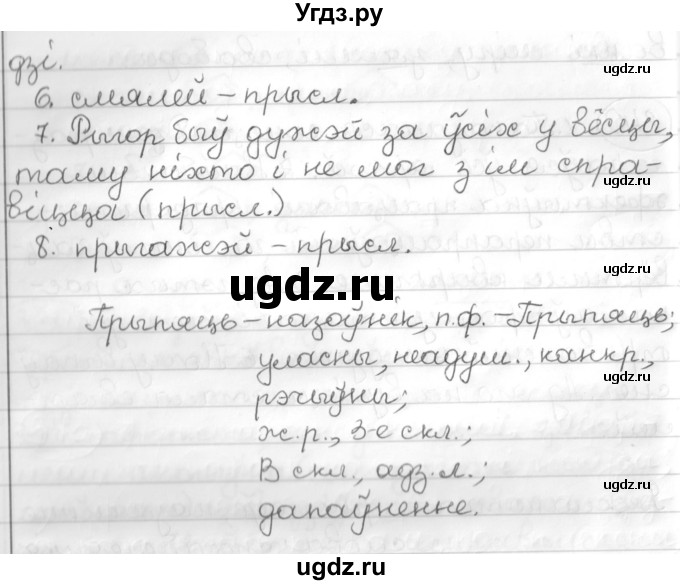 Угдз.ру
дзі.
ugdz.ru
6. смялей – прысл.
ugdz.ru
7. Рыгор быў дужэй за ўсіх у вёсцы,
таму ніхто і не мог з ім спра-
ugdz.ru
віцца (прысл.)
8. прыгажэй – прысл.
ugdz.ru
ugdz.ru
Прыпяць – назоўнік, п.ф. – Прыпяць;
уласны, неадуш., канкр.,
ugdz.ru
рэчыўны;
ж.р., 3-е скл.;
В скл., адз.л.;
ugdz.ru
дапаўненне.
ugdz.ru